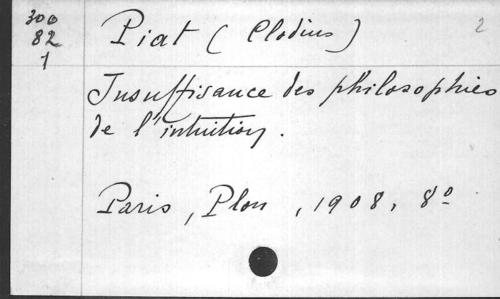 300 Piat ( Clodius ) 2
82
1
Insuffisance des philosophies
de l'intuition.
Paris, Plon, 1908, 8º